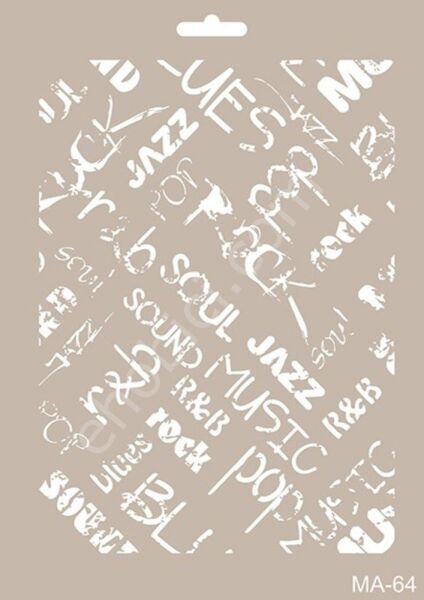 UES
JAZZ
JAZZ
rock
pop
pop
r&b
rock
soul
SOUL
soul
JAZZ
SOUND
JAZZ
r&b
R&B
MUSIC
R&B
POP
rock
blues
pop
BL
MUSIC
SOUND
MA-64